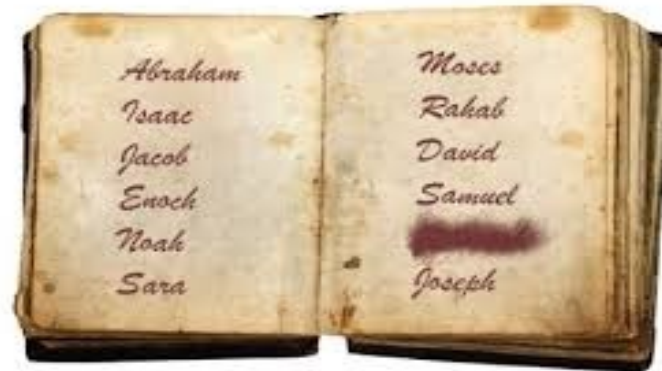 Abraham
Isaac
Jacob
Enoch
Noah
Sara
Moses
Rahab
David
Samuel
Joseph